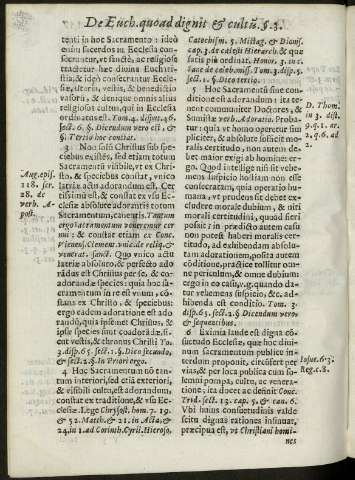 De Euch. quoad dignit & cultū. §. 3.
tenti in hoc Sacramento: ideò
enim sacerdos in Ecclesia con-
secratur, vt sanctè, ac religiosè
tractetur hæc diuina Euchari-
stia; & ideò consecrantur Eccle-
siæ, altaria, vestis, & benedictio
vasorū, & denique omnis alius
religiosus cultus, qui in Ecclesia
ordinatus est. Tom. 4. disput. 46.
sect. 6. §. Dicendum vero est, vbi
§. Tertio hoc constat.
3 Non solū Christus sub spe-
ciebus existēs, sed etiam totum
Sacramentū visibile, vt ex Chri-
sto, & speciebus constat, vnica
latriæ actu adorandum est. Cer-
tissimū est, & constat ex vsu Ec-
clesiæ absolutè adorantis totum
Sacramentum, canentis, Tantum
ergo sacramentum veneremur cer-
nui; & constat etiam ex Conc.
Vienen. Clement. vnic. de reliq. &
venerat. sanct. Quo vnico actu
latriæ absoluto, & perfecto ado
rādus est Christus per se, & co-
adorandæ species: quia hoc sa-
cramentum in re est vnum, cō-
stans ex Christo, & speciebus:
ergo eadem adoratione est ado
randū, quia ipsemet Christus, &
ipsæ species sunt coadorādæ, si-
cut vestis, & chronus Christi To
3. disp. 65. sect. 1. §. Dico secundo,
& sect. 2. §. In Priori ergo.
4 Hoc Sacramentum nō tan-
tum interiori, sed etiā exteriori,
& visibili cultu, est adorandum,
constat ex traditione, & vsu Ec-
clesiæ. Lege Chrysost. hom. 7. 19
& 52. Matth. & 21. in Acta, &
24. in 1. ad Corinth. Cyril. Hieroso.
Aug. epis.
118. ser.
28. de
verb. A-
post.
Catochism. 5. Mistag. & Dionis.
cap. 3. de cælesti Hierarch. & quæ
satis piè ordinat. Honor. 3. in
Tom. 3. disp. 5.
sect. 1. §. Dico tertio.
5 Hoc Sacramentū sine con-
ditione est adorandum: ita te-
nent communiter Doctores, &
Summistæ verb. Adoratio. Et
Probatur: quia vt homo operetur sim
pliciter, & absolute sufficit mo-
ralis certitudo, non autem de-
bet maior exigi ab homine: er-
go. Quod intellige nisi sit vehe-
mens suspicio hostiam non esse
consecratam, quia operatio hu-
mana, vt prudens sit debet ex-
cludere morale dubium, & niti
morali certitudini, quòd fieri
potest: in prædicto autem casu
non potest haberi moralis certi-
tudo, ad exhibendam absolu-
tam adorationem, posita autem
cōditione, practicè tollitur om-
ne periculum, & omne dubium:
ergo in eo casu, v. g. quando da-
tur vehemens suspicio, &c. ad-
hibenda est conditio. Tom. 3.
disp. 65. sect. 2. §. Dicendum vero
& sequentibus.
6 Eximia laude est digna cō-
suetudo Ecclesiæ, quæ hoc diui-
num Sacramentum publicè in-
terdum proponit, circūfert per
vias, & per loca publica cum so-
lemni pompa, cultu, ac venera-
tione, ita docet ac definit Conc.
Trid. sect. 13. cap. 5. & can. 6.
Vbi huius consuetudinis valde
sciru dignas rationes insinuat,
præcipua est, vt Christiani homi-
nes
D. Thom.
in 3. dist.
9. q. 1. ar.
2. q. 6. ad
2.
Iosue. 6. 3.
Reg. c. 8.